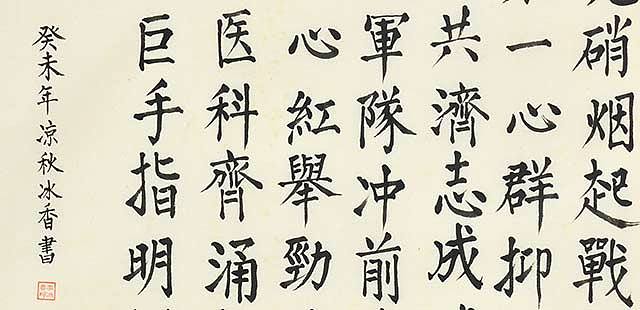 硝烟起戰
一心群抑
共濟志成
軍隊冲前
心紅舉勁
医科齊涌
巨手指明
癸未年凉秋冰香書